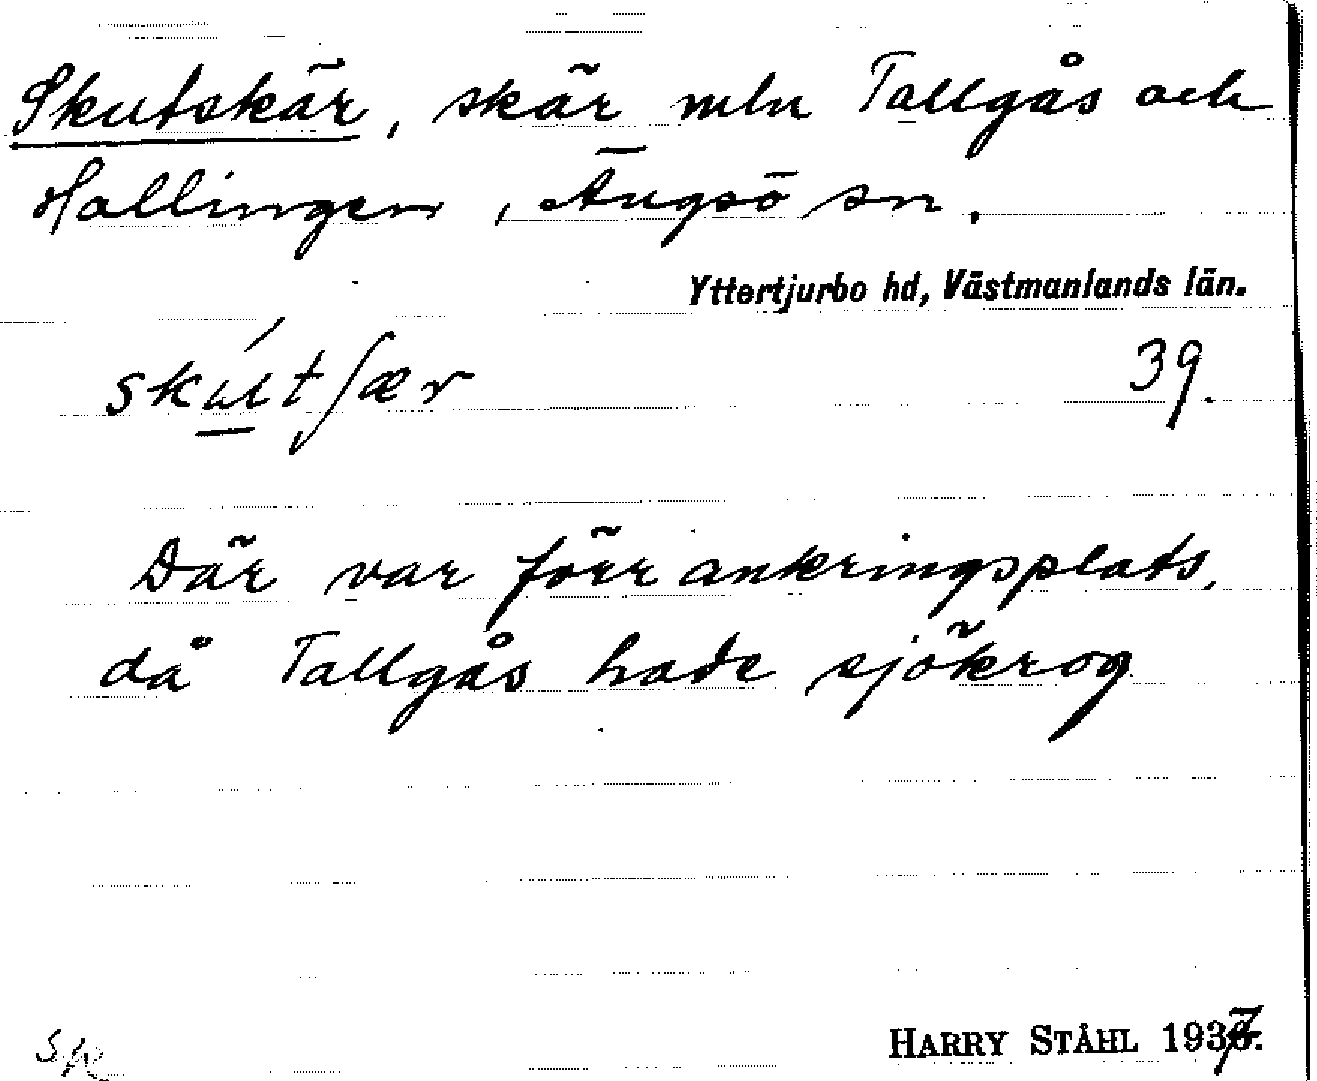 Skutskär, skär mln Tallgås och
Hallingen, Ängsö sn.
Yttertjurbo hd, Västmanlands län.
skútʃær 39.
Där var förr ankringsplats,
då Tallgås hade sjökrog
HARRY STÅHL 1937.